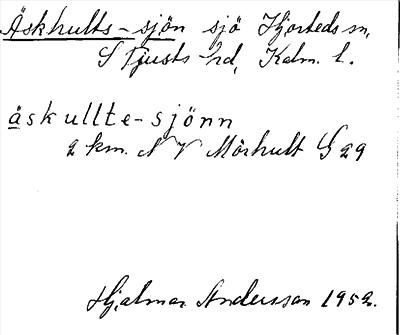 Äskhults-sjön sjö Hjorteds sn,
S Tjusts hd, Kalm. l.
äskullte-sjönn
2 km. N V Mörhult G 29
Hjalmar Andersson 1952.